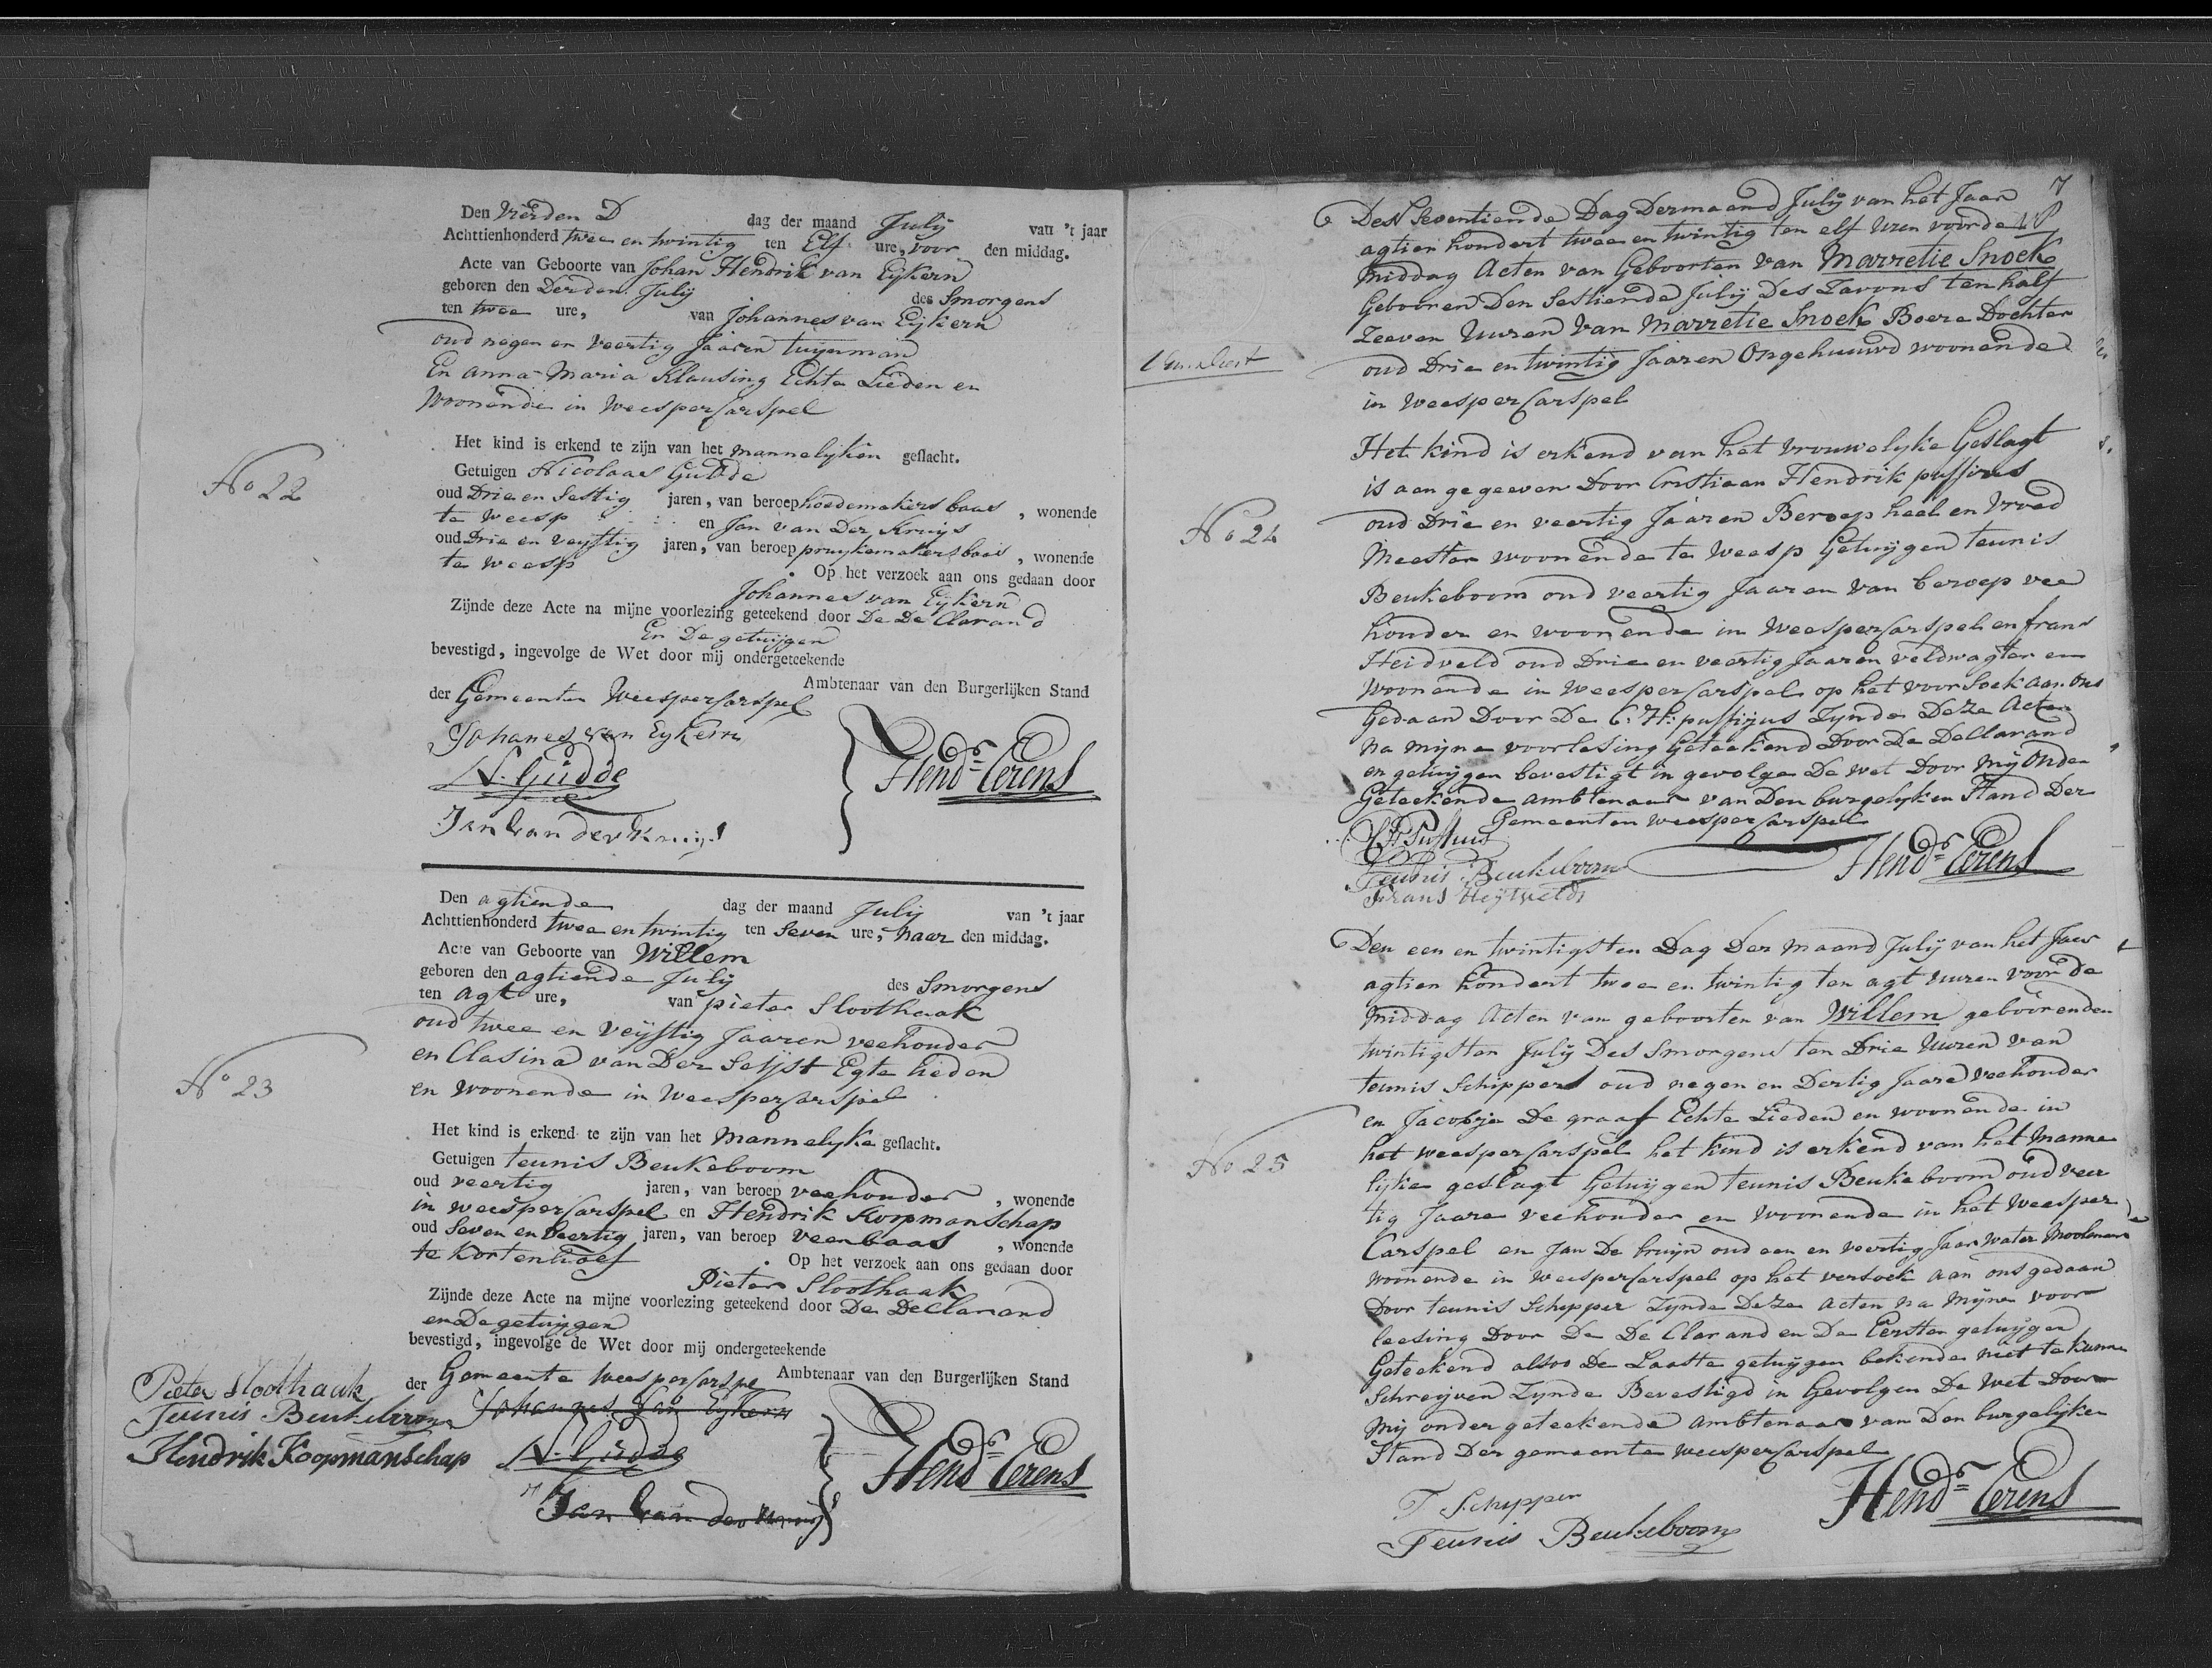 Den Vierden D dag der maand July van 't jaar
Achttienhonderd twee en twintig ten Elf ure, voor den middag.
Acte van Geboorte van Johan Hendrik van Eijkern
geboren den Derden July des Smorgens
ten twee ure, van Johannes van Eijkern
oud negen en Veertig Jaaren tuijnman
En Anna Maria Klausing Echte Lieden en
Woonende in Weesper Carspel
No 22
Het kind is erkend te zijn van het mannelyken geslacht.
Getuigen Nicolaas Gudde
oud Drie en Sestig jaren, van beroep hoedemakers baas, wonende
te Weesp en Jan van Der Kruijs
oud Drie en veyftig jaren, van beroep pruykemakers baas, wonende
te Weesp . Op het verzoek aan ons gedaan door
Johannes van Eijkern
Zijnde deze Acte na mijne voorlezing geteekend door De De Clarand
En De getuijgen
bevestigd, ingevolge de Wet door mij ondergeteekende
Ambtenaar van den Burgerlijken Stand
der Gemeenten Weesper Carspel
Johanes van Eykern
N. Gudde
Jan van der Kruijs
Hendr Eerens
Den agtiende dag der maand July van 't jaar
Achttienhonderd twee en twintig ten Seven ure, naar den middag.
Acte van Geboorte van Willem
geboren den agtiende July des Smorgens
ten agt ure, van pieter Sloothaak
oud twee en Veijftig Jaaren veehouder
en Clasina van Der Seijst Egte lieden
en woonende in Weesper Carspel
No 23
Het kind is erkend te zijn van het Mannelyke geslacht.
Getuigen teunis Beukeboom
oud veertig jaren, van beroep veehouder, wonende
in weesper Carspel en Hendrik Koopmanschap
oud Seven en Veertig jaren, van beroep Veenbaas, wonende
te Kortenhoef . Op het verzoek aan ons gedaan door
Pieter Sloothaak
Zijnde deze Acte na mijne voorlezing geteekend door De DeClarand
en De getuijgen
bevestigd, ingevolge de Wet door mij ondergeteekende
Ambtenaar van den Burgerlijken Stand
der Gemeente Weesper Carspel
Pieter Sloothaak
Teunis Beukeboom
Hendrik Koopmanschap
Johannes van Eykern
N. Gudde
Jan van der Kruijs
Hendr Eerens
7
Den Seventiende Dag Der maand July van het Jaar
agtien hondert twee en twintig ten elf uren voorde
middag Acten van Geboorten van Marretie Snoek
Gebooren Den Sestiende July Des Zavons ten half
Zeeven Uuren van Marretie Snoek Boere Dochter
oud Drie en twintig Jaaren Ongehuuwd woonende
in Weesper Carspel
No 24
Het kind is erkend van het vrouwelyke Geslagt
is aangegeeven Door Cristiaan Hendrik
oud Drie en veertig Jaaren Beroep heel en Vroed
Meester woonende te Weesp Getuijgen teunis
Beukeboom oud veertig Jaaren van beroep vee
houder en woonende in Weesper Carspel en frans
Heidveld oud Drie en veertig Jaaren veldwagter en
woonende in weesper Carspel op het voorsoek aan ons
Gedaan Door De C: H: Zynde Deze Acten
na mijne voorlesing Geteekend Door De DeClarand
en getuijgen bevestigt in gevolge De wet Door mij Onder
Geteekende ambtenaar van Den burgelyken Stand Der
Gemeenten weesper Carspel
Teunis Beukeboom
Frans Heijtveldt
Hendr Eerens
Den een en twintigsten Dag Der maand July van het Jaar
agtien hondert twee en twintig ten agt uuren voor de
middag Acten van geboorten van Willem geboorenden
twintigsten July Des Smorgens ten Drie Uuren van
teunis Schippers oud negen en Dertig Jaare veehouder
en Jacobje De graaf Echte Lieden en woonende in
No 25
het weesper Carspel het kind is erkend van het Manne
lijke geslagt Getuijgen teunis Beukeboom oud veer
tig Jaare veehouder en woonende in het Weesper
Carspel en Jan De bruijn oud een en veertig Jaar water Moolenaar
woonende in weesper Carspel op het versoek aan ons gedaan
Door teunis Schipper Zynde Deze acten na Mijne voor
leesing Door De De Clarand en De Eersten getuijgen
Geteekend alsoo De Laaste getuijgen bekende niet te kunnen
Schreijven Zynde Bevestigd in Gevolgen De Wet Door
Mij ondergeteekende ambtenaar van Den burgelijken
Stand Der gemeente weesper Carspel
T Schipper
Teunis Beukeboom
Hendr Eerens